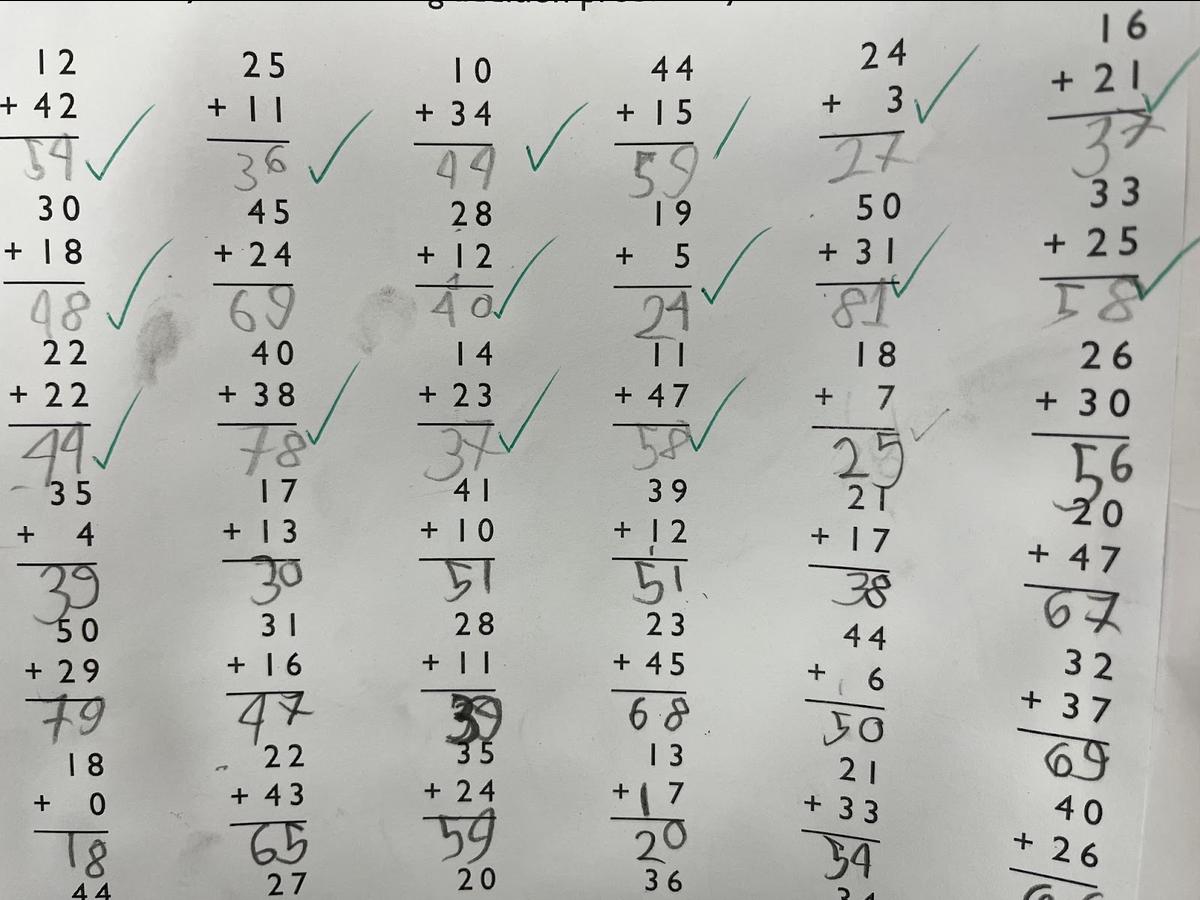 12 25 10 44 24 16
+ 42 + 11 + 34 + 15 + 3 + 21
54 36 44 59 27 37
30 45 28 19 50 33
+ 18 + 24 + 12 + 5 + 31 + 25
1
48 69 40 24 81 58
22 40 14 11 18 26
+ 22 + 38 + 23 + 47 + 7 + 30
44 78 37 58 25 56
35 17 41 39 21 20
+ 4 + 13 + 10 + 12 + 17 + 47
1
39 30 51 51 38 67
50 31 28 23 44 32
+ 29 + 16 + 11 + 45 + 6 + 37
79 47 39 68 50 69
18 22 35 13 21 40
+ 0 + 43 + 24 + 17 + 33 + 26
18 65 59 20 54
44 27 20 36